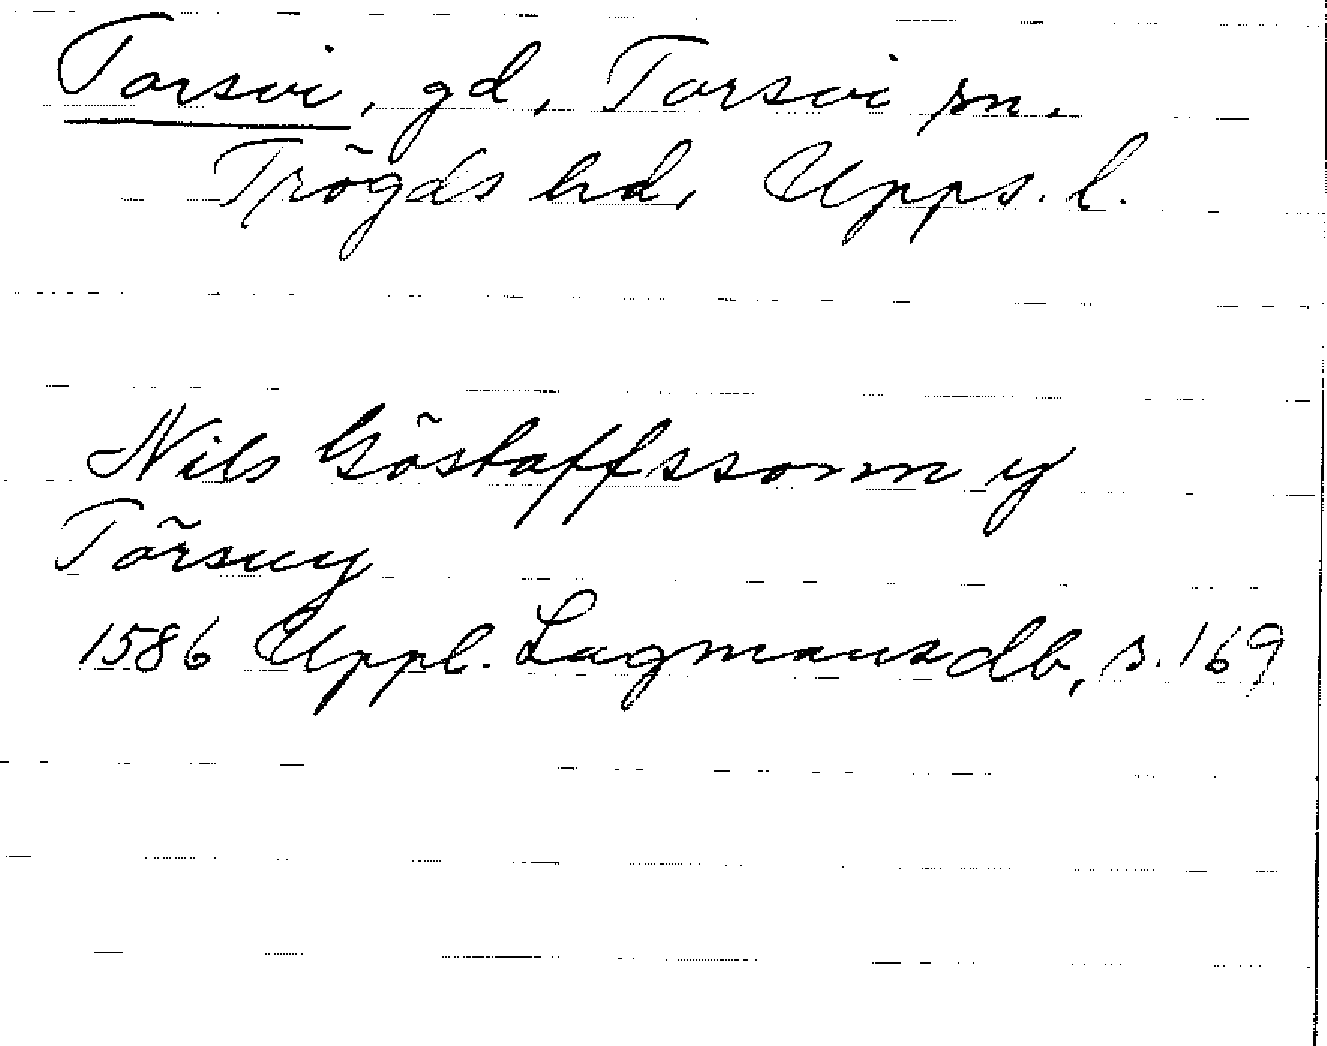 Torsvi, gd, Torsvi sn.
Trögds hd, Upps. l.
Nils Göstaffssonn y
Törsuy
1586 Uppl. Lagmansdb, s. 169